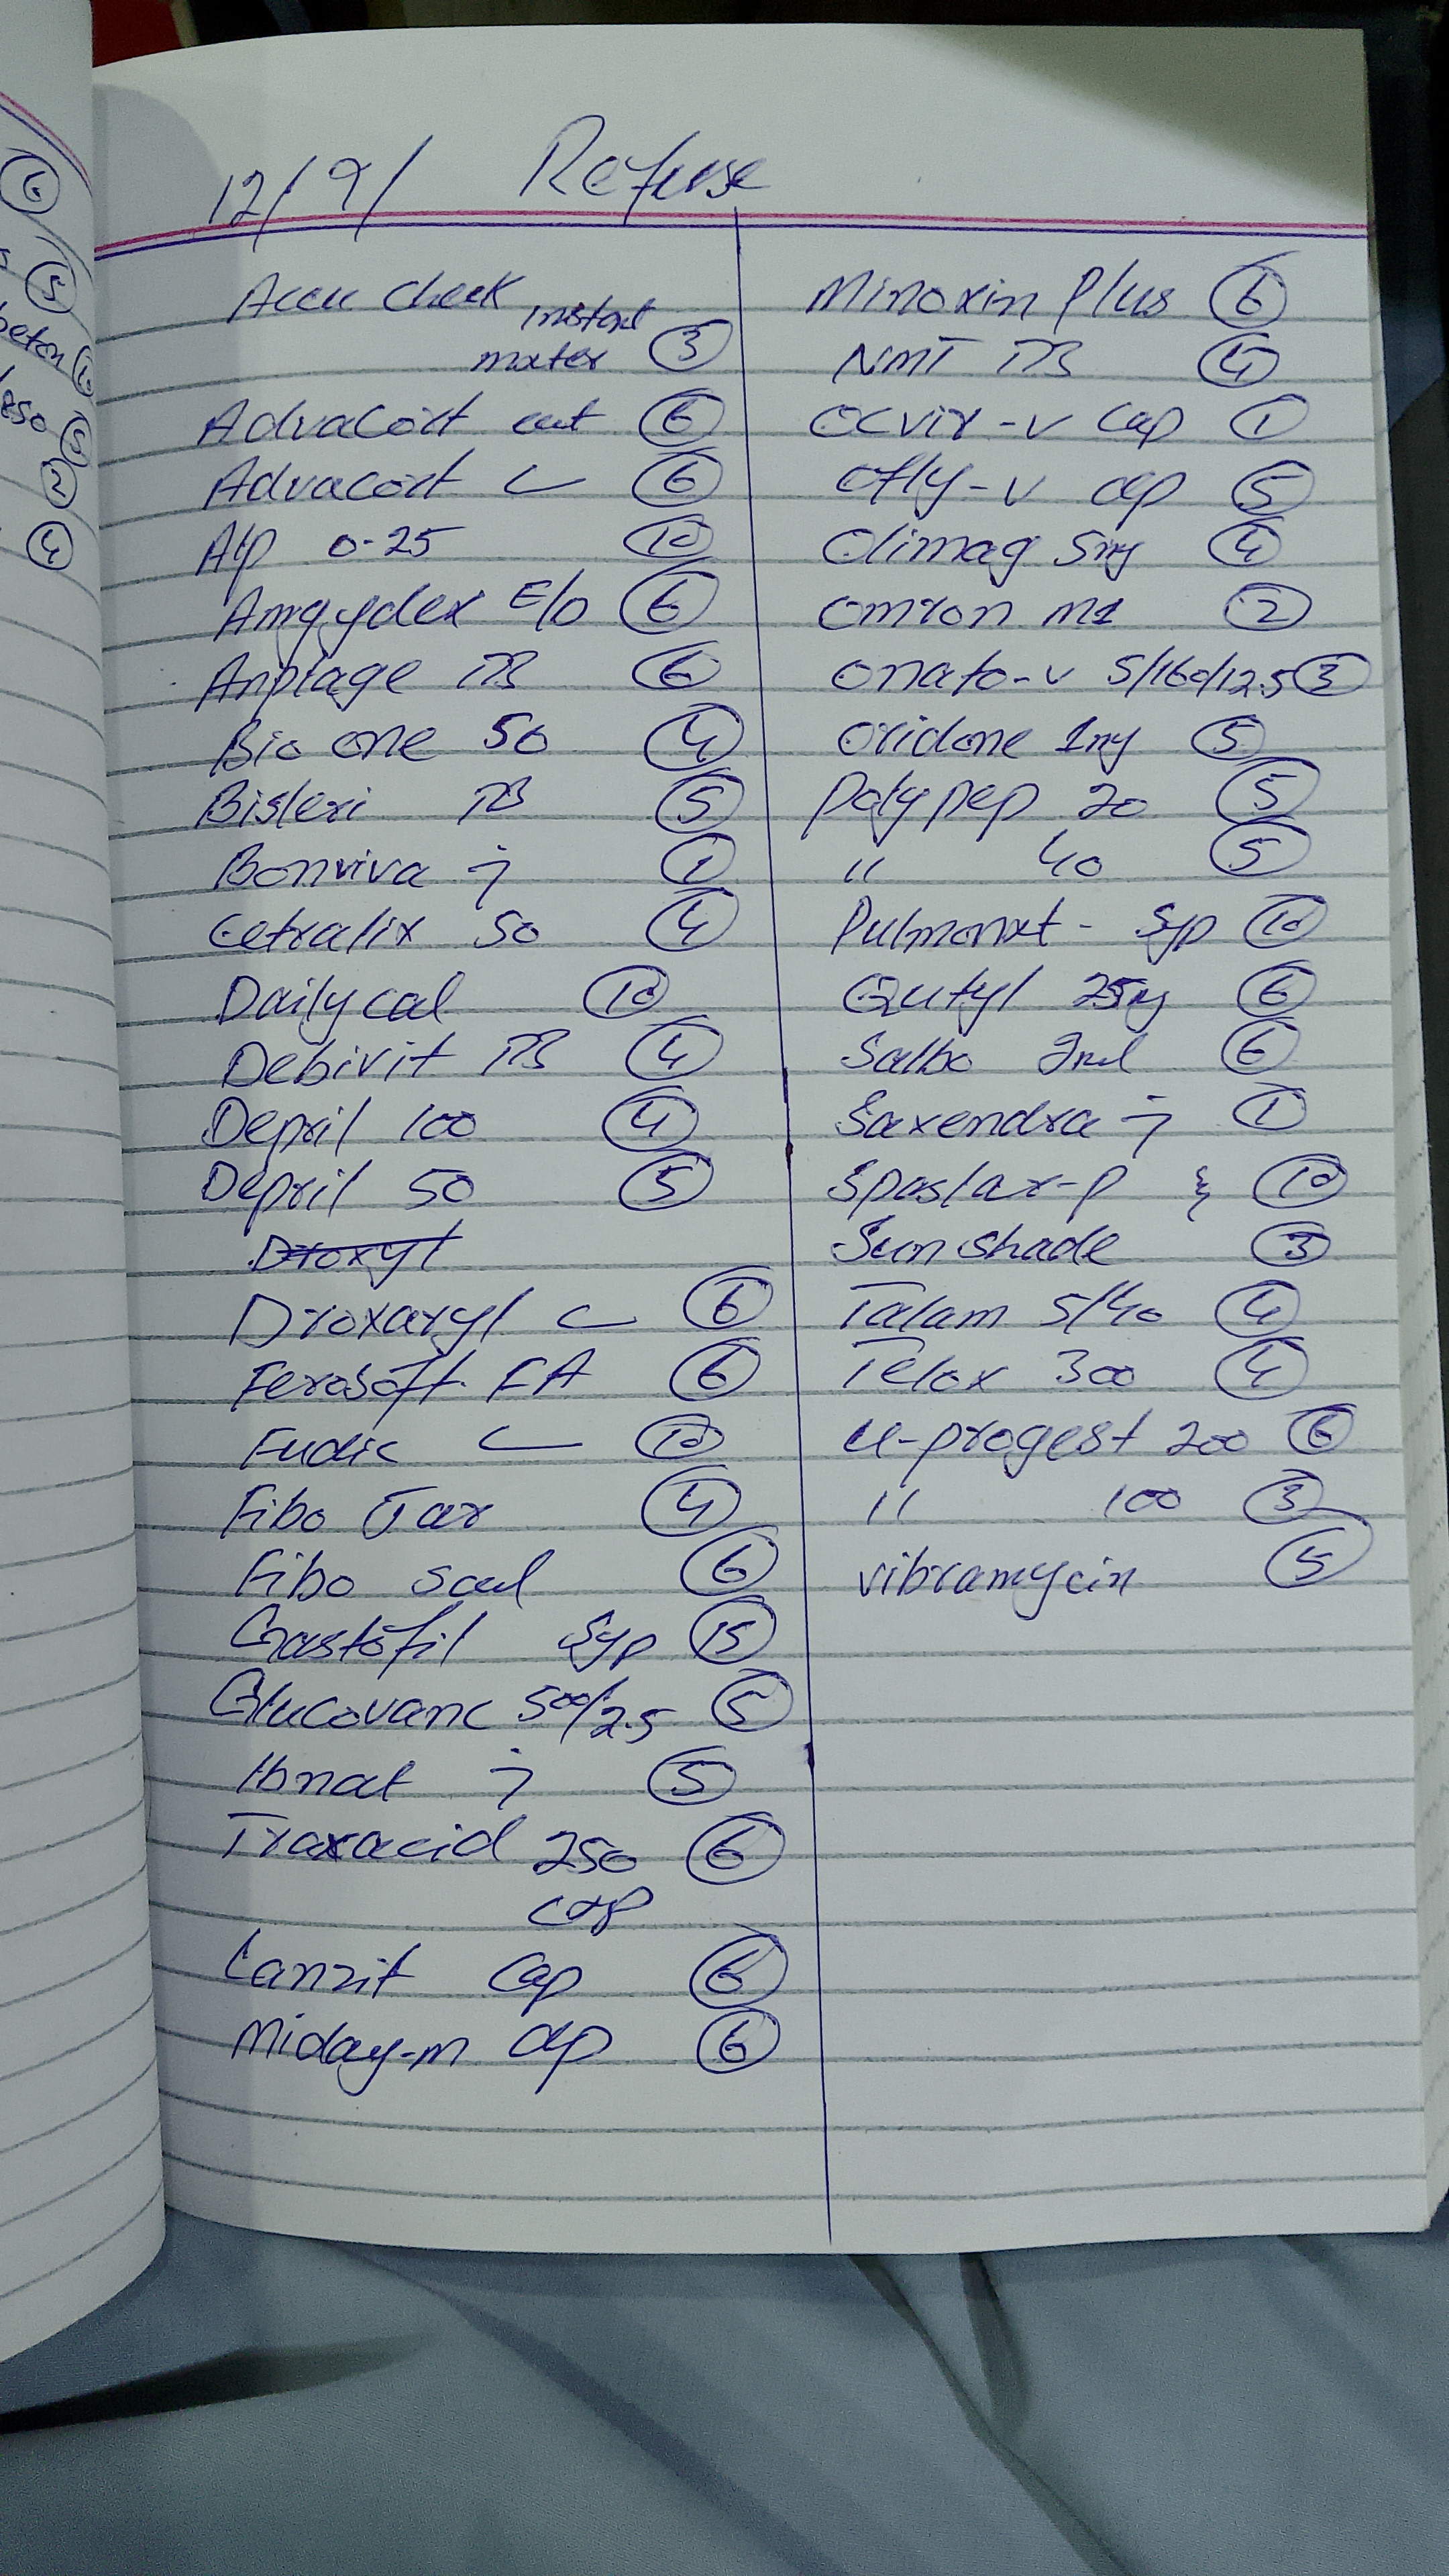 12/9/ Refuse
Accu Check instant
mater 3
Advacort out 6
Advacort 6
Alp 0.25 10
Amgydex E/O 6
Anplage TB 6
Bio one 50 4
Bisleri TB 5
Bonviva 1
Cetralix 50 4
Dailycal 10
Debivit TB 4
Depril 100 4
Depril 50 5
Droxyl
Droxaryl 6
Ferosoft FA 6
Fudic 10
Fibo Jar 4
Fibo 6
Gastofil Syp 15
Glucovanc 500/2.5 5
5
Traxacid 250 6
cap
Lanzit Cap 6
Miday-m cap 6
Minoxin Plus 6
NMT TB 4
Ocvir-v Cap 1
Ofly-v cap 5
Olimag 5mg 4
Omron M1 2
Onato-v 5/160/12.5 3
Oridone 1mg 5
Polypep 20 5
" 40 5
Pulmonxt - Syp 10
Qutyl 25mg 6
Salbo 6
Saxendra 1
Spaslax-P 10
Sunshade 3
Talam 5/40 4
Telox 300 4
U-progest 200 6
" 100 3
vibramycin 5
6
5
5
2
4